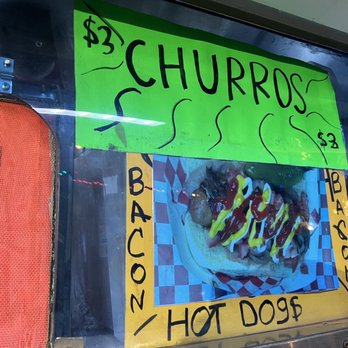 $3
CHURROS
$3
BACON
BACON
HOT DOG$